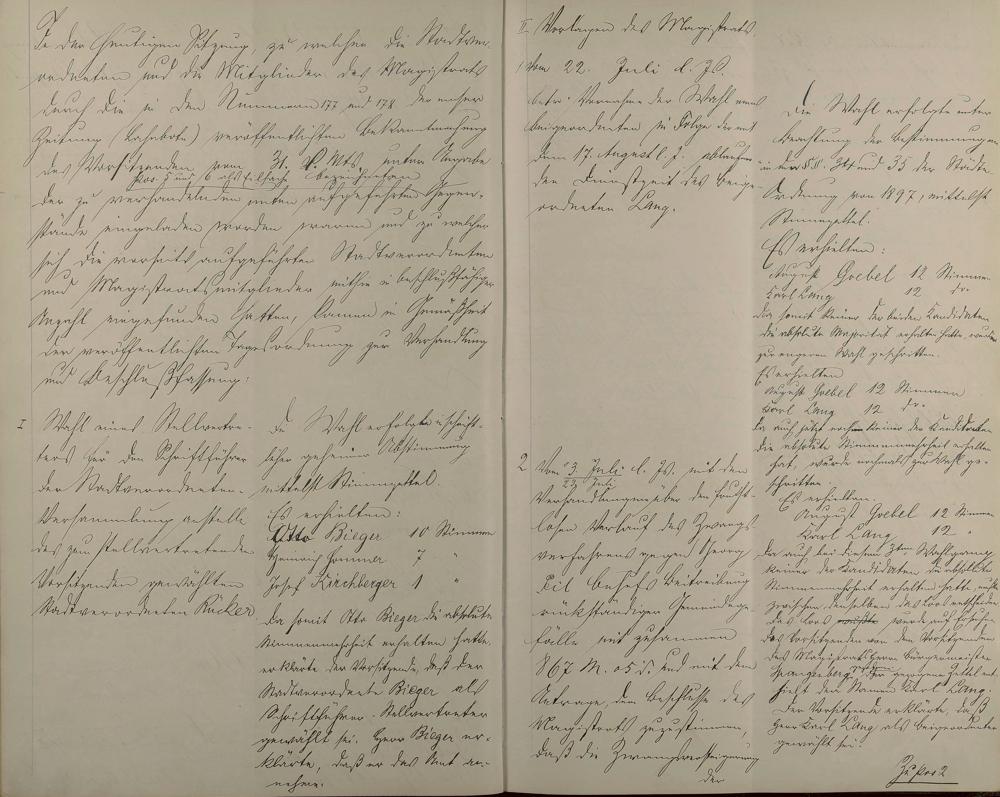 In der heutigen Sitzung, zu welcher die Stadtver-
ordneten und die Mitglieder des Magistrats
durch die in den Nummern 177 und 178 der
Zeitung (Lahnbote) veröffentlichten Bekanntmachung
des Vorsitzenden vom 31. v. Mts. unter Angabe
Pos. 5 und 6 als bezeichneten
der zu verhandelnden unten aufgeführten Gegen-
stände eingeladen worden waren und zu welcher
sich die vorseits aufgeführten Stadtverordneten
und Magistratsmitglieder mithin in beschlußfähiger
Anzahl eingefunden hatten, kamen in Gemäßheit
der veröffentlichten Tagesordnung zur Verhandlung
und Beschlußfassung:
I
Wahl eines Stellvertre-
ters für den Schriftführer
der Stadtverordneten-
Versammlung anstelle
des zum stellvertretenden
Vorsitzenden gewählten
Stadtverordneten Rücker
Die Wahl erfolgte in schrift-
licher geheimer Abstimmung
mittelst Stimmzettel.
Es erhielten:
Otto Bieger 10 Stimmen
Heinrich 7 "
Josef Kirchberger 1 "
Da somit Otto Bieger die absolute
Stimmenmehrheit erhalten hatte,
erklärte der Vorsitzende, daß der
Stadtverordnete Bieger als
Schriftführer-Stellvertreter
gewählt sei. Herr Bieger er-
klärte, daß er das Amt an-
nehme.
II Vorlagen des Magistrats.
1 Vom 22. Juli d. Js.
betr. Vornahme der Wahl eines
Beigeordneten in Folge der mit
dem 17. August l. J. ablaufen-
den Dienstzeit des Beige-
ordneten Lang.
Die Wahl erfolgte unter
Beachtung der Bestimmungen
in den §§ 34 und 35 der Städte-
Ordnung von 1897, mittelst
Stimmzettel.
Es erhielten:
August Goebel 12 Stimmen
Karl Lang 12 do.
Da somit keiner der beiden Kandidaten
die absolute Majorität erhalten hatte, wurde
zur engeren Wahl geschritten.
Es erhielten
August Goebel 12 Stimmen
Karl Lang 12 do.
Da auch jetzt noch keiner der Kandidaten
die absolute Stimmenmehrheit erhalten
hat, wurde nochmals zur Wahl ge-
schritten.
Es erhielten.
August Goebel 12 Stimmen
Karl Lang 12 "
Da auch bei diesem 3ten Wahlgang
keiner der Kandidaten die absolute
Stimmenmehrheit erhalten hatte, mußte
zwischen denselben das Loos entscheiden
Das Loos wurde auf Ersuchen
des Vorsitzenden von dem Vorsitzenden
des Magistrats Herrn Bürgermeister
Spangenberg gezogen. Der gezogene Zettel ent-
hielt den Namen Karl Lang.
Der Vorsitzende erklärte, daß
Herr Karl Lang als Beigeordneter
gewählt sei.
2 Vom 3. Juli d. Js. mit den
23. Juli
Verhandlungen über den frucht-
losen Verlauf des Zwangs-
verfahrens gegen Georg
behufs Beitreibung
rückständiger Gemeindege-
fälle mit zusammen
867 M. 05 d. und mit dem
Antrage, dem Beschlusse des
Magistrats zuzustimmen,
daß die Zwangsversteigerung
der
Zu pos 2